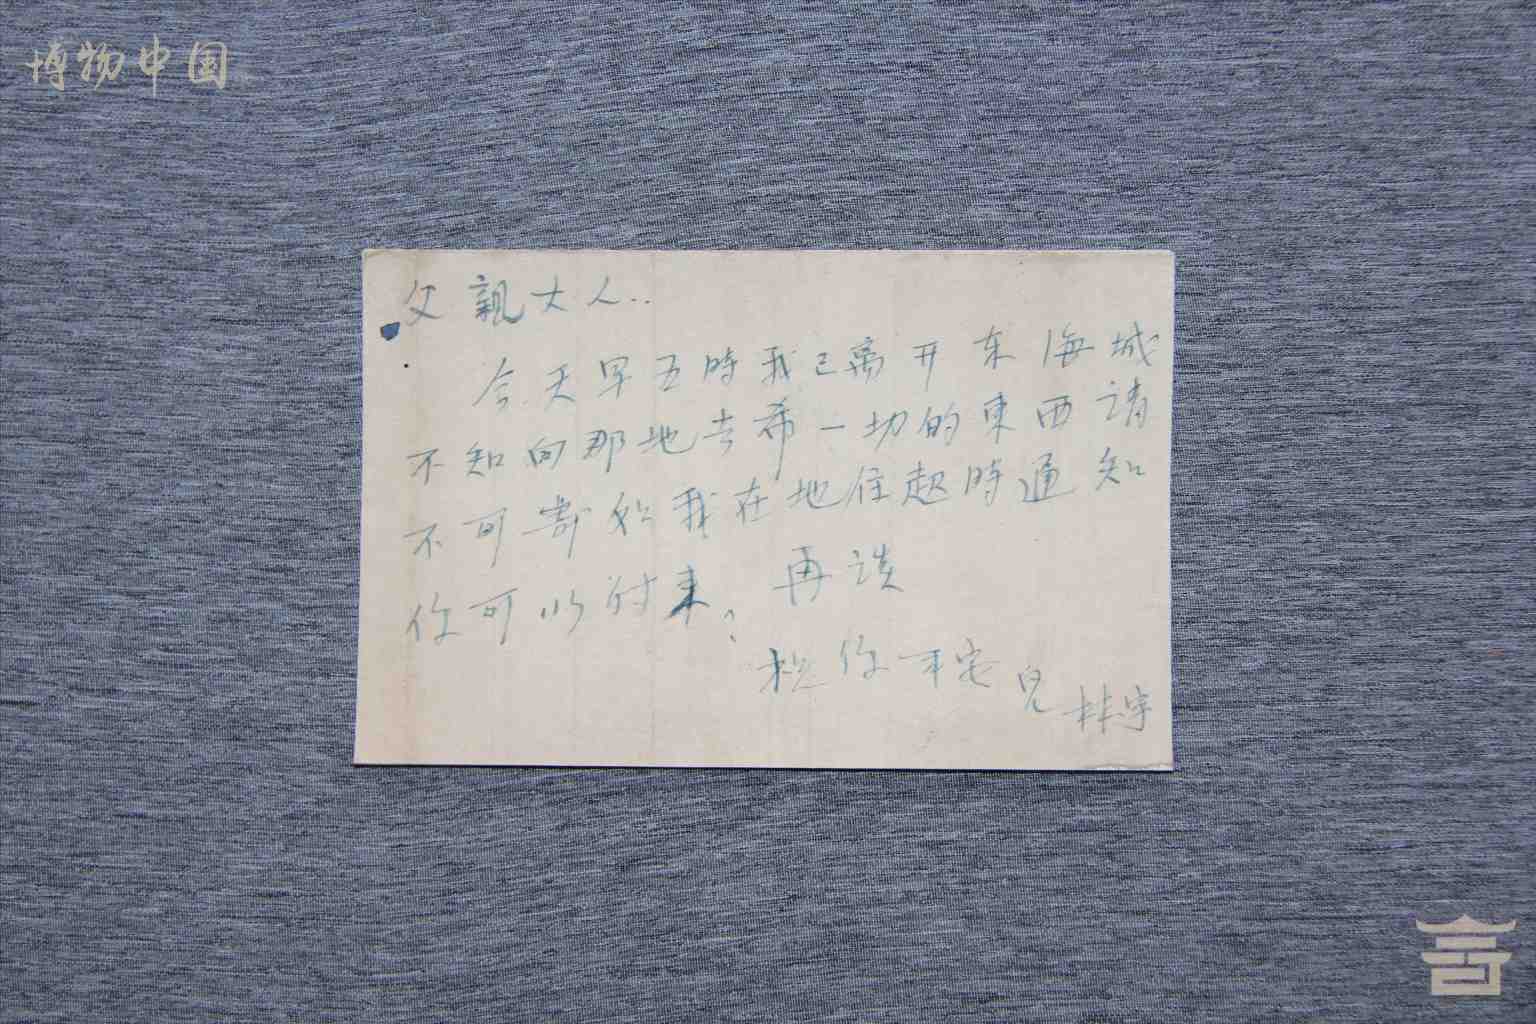 博物中国
父親大人..
今天早五時我已离开东海城
不知向那地去希一切的東西请
不可寄给我在地住起時通知
你可以付来, 再谈
祝你平安 兒 林宇